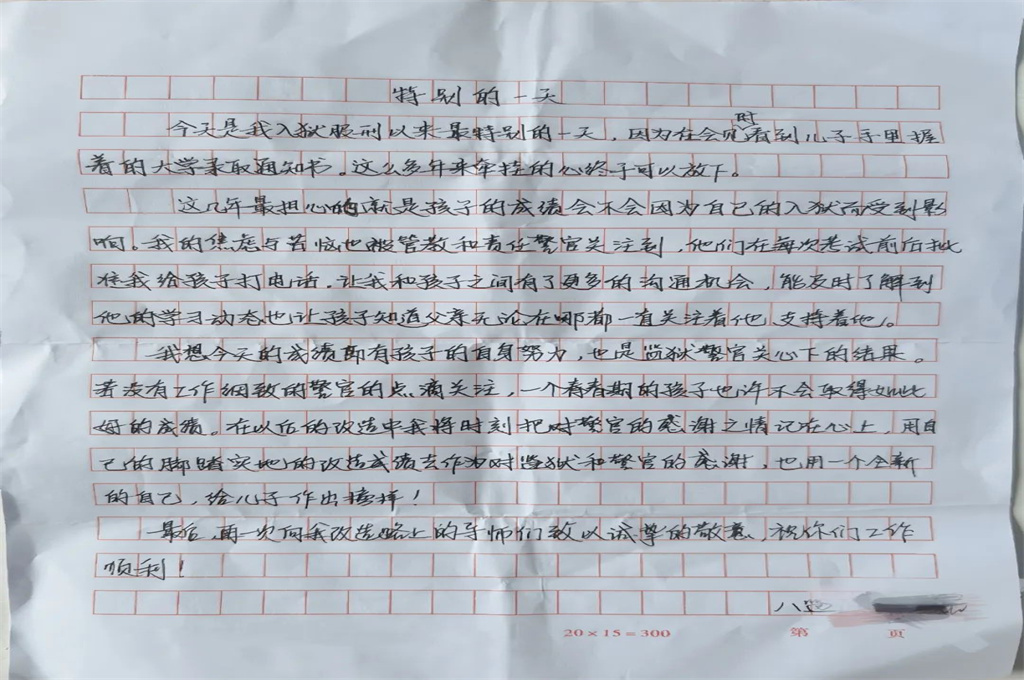 特别的一天
今天是我入狱服刑以来最特别的一天，因为在会见时看到儿子手里握
着的大学录取通知书。这么多年来牵挂的心终于可以放下。
这几年最担心的就是孩子的成绩会不会因为自己的入狱而受到影
响。我的焦虑与苦恼也被管教和责任警官关注到，他们在每次考试前后批
准我给孩子打电话，让我和孩子之间有了更多的沟通机会，能及时了解到
他的学习动态也让孩子知道父亲无论在哪都一直关注着他，支持着他。
我想今天的成绩即有孩子的自身努力，也是监狱警官关心下的结果。
若没有工作细致的警官的点滴关注，一个青春期的孩子也许不会取得如此
好的成绩。在以后的改造中我将时刻把对警官的感谢之情记在心上，用自
己的脚踏实地的改造成绩去作为对监狱和警官的感谢，也用一个全新
的自己，给儿子作出榜样！
最后，再一次向我改造路上的导师们致以诚挚的敬意，祝你们工作
顺利！
八
20×15=300 第 页